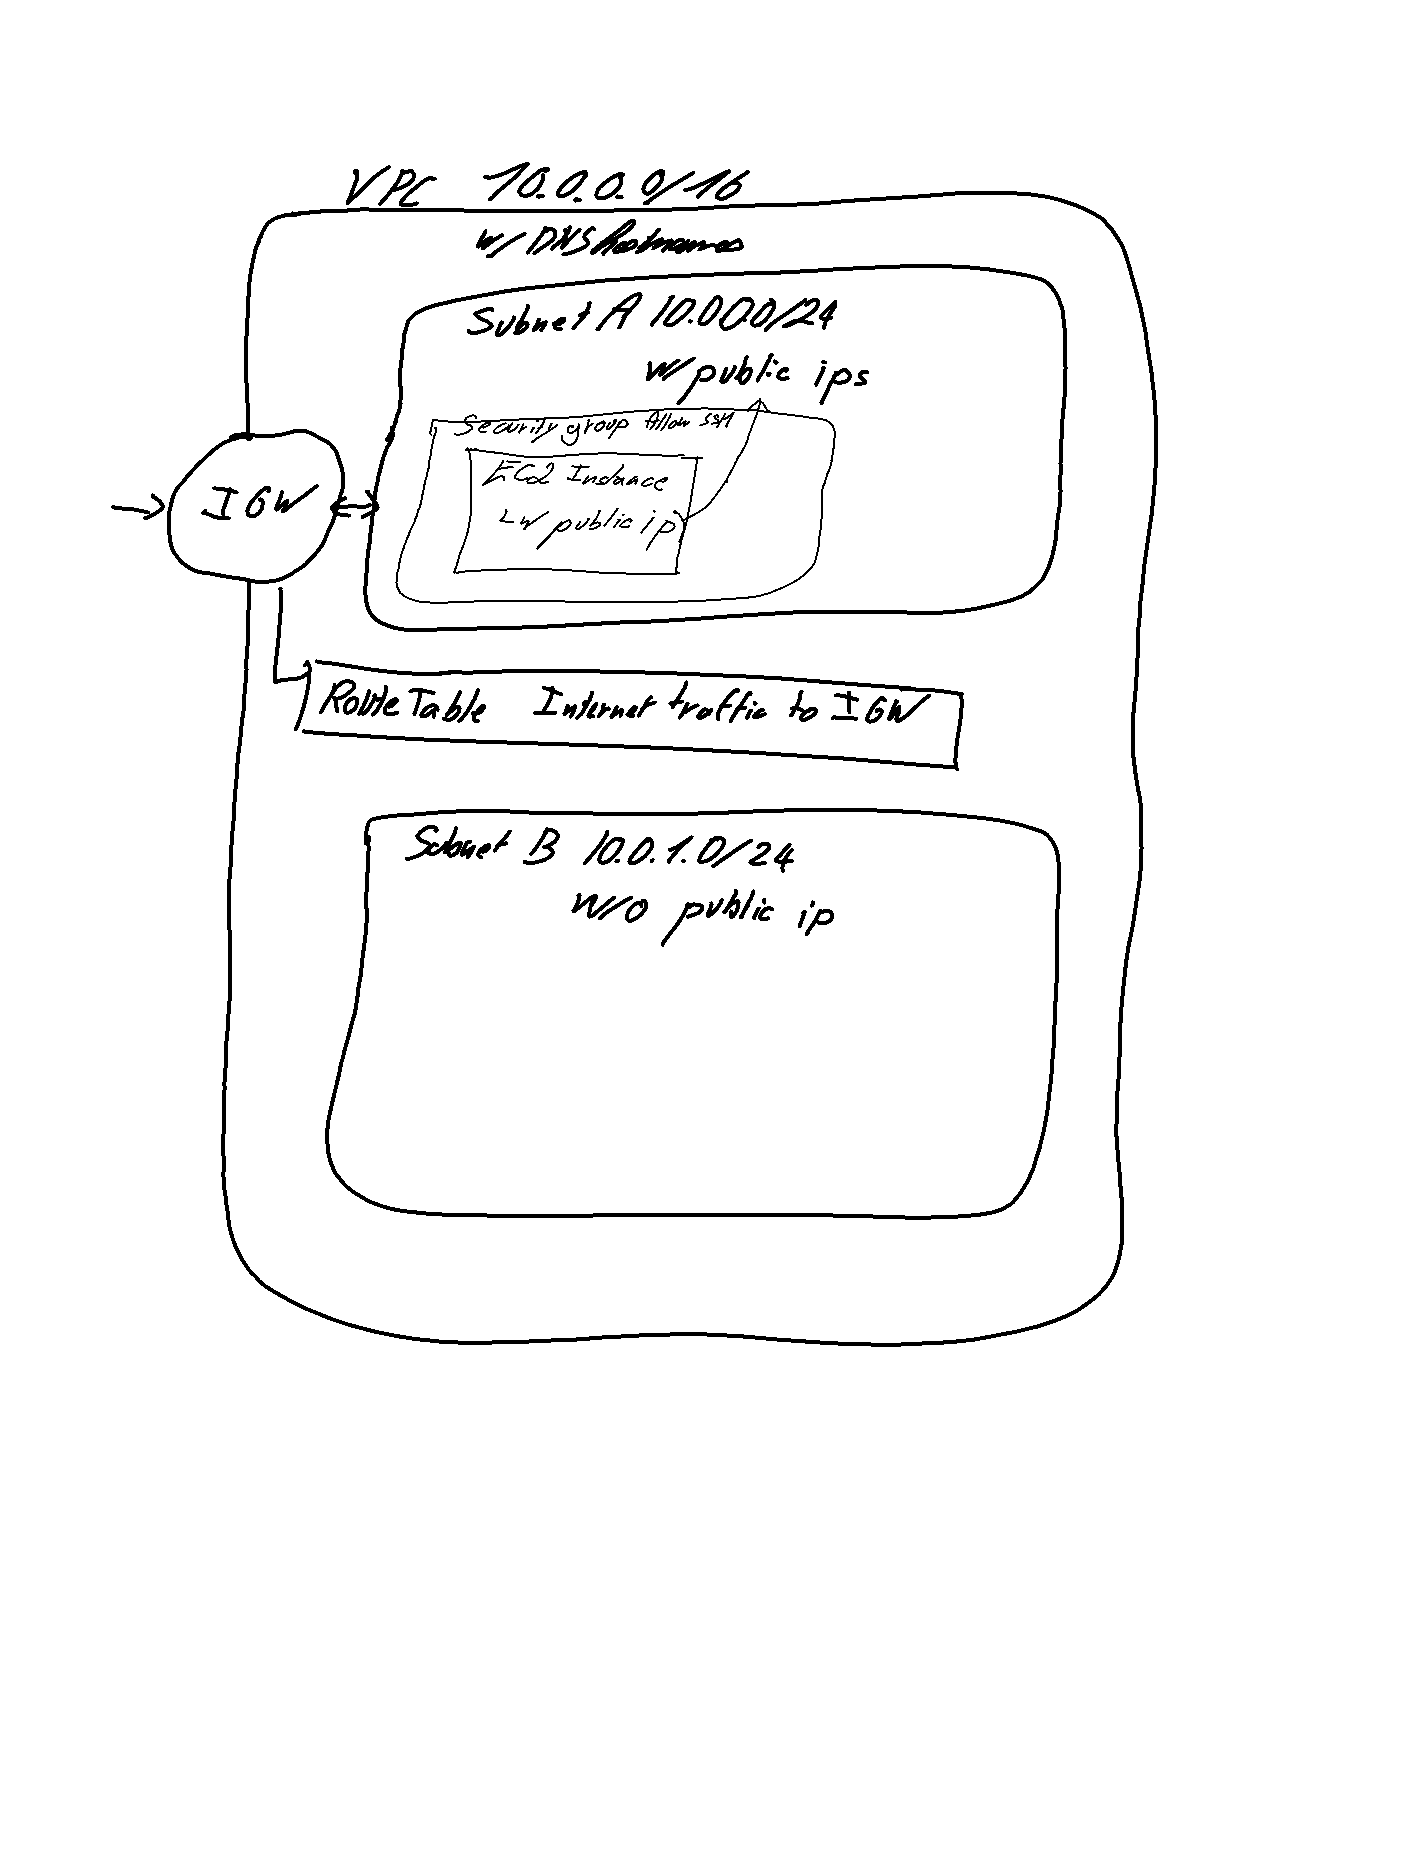 VPC 10.0.0.0/16
w/ DNS hostnames
Subnet A 10.0.0.0/24
w/ public ips
Security group Allow SSH
EC2 Instance
w public ip
IGW
Route Table Internet traffic to IGW
Subnet B 10.0.1.0/24
w/o public ip